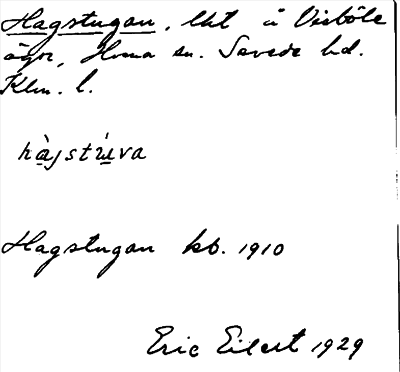 Hagstugan, lht å Visböle
ägor, Hvena sn. Sevede hd.
Klm. l.
hà̱jstú̱va
Hagstugan kb. 1910
Eric Eilert 1929